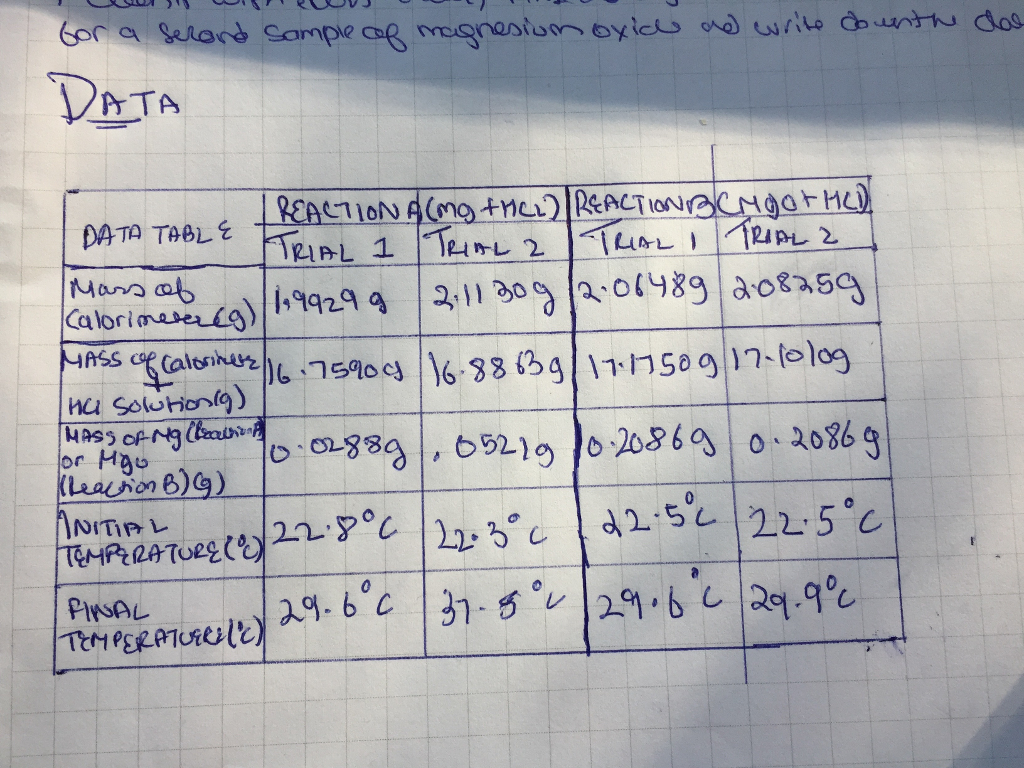 for a second sample of magnesium oxide and write down the
DATA
DATA TABLE
REACTION A (Mg + HCl) REACTION B (MgO + HCl)
TRIAL 1 TRIAL 2 TRIAL 1 TRIAL 2
Mass of
Calorimeter (g)
1.9929 g 2.1130g 2.06489g 2.0825g
MASS of Calorimeter
+
HCl Solution (g)
16.7590g 16.8863g 17.1750g 17.1010g
MASS OF Mg (Reaction A)
or MgO
(Reaction B) (g)
0.0288g .0521g 0.2086g 0.2086g
INITIAL
TEMPERATURE (°C)
22.8°C 22.3°C 22.5°C 22.5°C
FINAL
TEMPERATURE (°C)
29.6°C 37.5°C 29.6°C 29.9°C